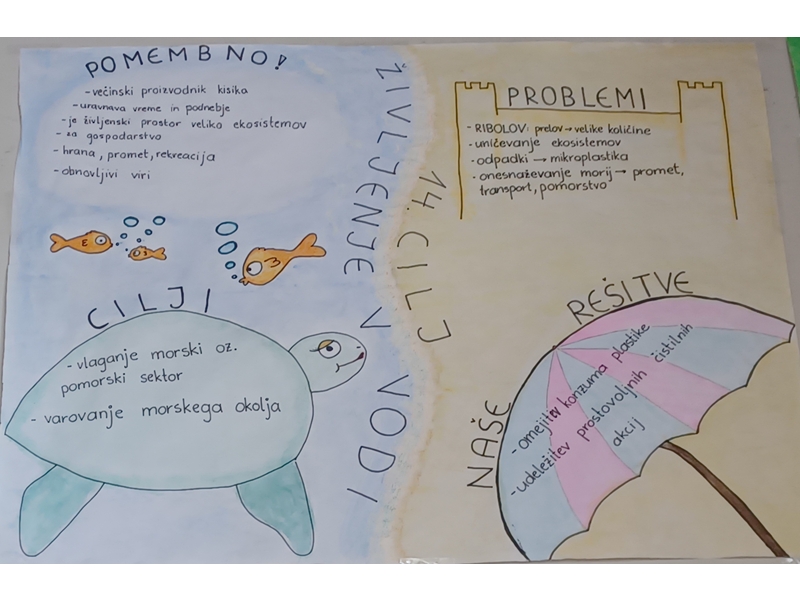 POMEMBNO!
- večinski proizvodnik kisika
- uravnava vreme in podnebje
- je življenjski prostor veliko ekosistemov
- za gospodarstvo
- hrana, promet, rekreacija
- obnovljivi viri
CILJI
- vlaganje morski oz.
pomorski sektor
- varovanje morskega okolja
14. CILJ
ŽIVLJENJE V VODI
PROBLEMI
- RIBOLOV: prelov → velike količine
- uničevanje ekosistemov
- odpadki → mikroplastika
- onesnaževanje morij → promet,
transport, pomorstvo
NAŠE REŠITVE
- omejitv konzuma plastike
- udeležitev prostovoljnih čistilnih
akcij